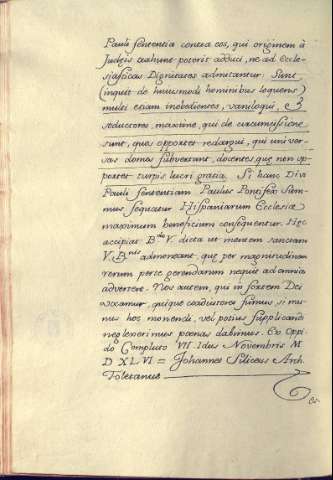 Pauli sententia contra eos, qui originem à
Judæis trahunt poterit adduci, ne ad Eccle-
siasticas Dignitates admitantur. Sunt
(inquit de huiusmodi hominibus loquens)
multi etiam inobedientes, vaniloqui, &
seductores, maxime, qui de circumissione
sunt, quos oportet redargui, qui univer-
sas domos subvertunt, docentes que non op-
portet turpis lucri gratia. Si hanc Divi
Pauli sententiam Paulus Pontifex Sum-
mus sequatur Hispaniarum Ecclesiæ
maximum beneficium consequentur. Hęc
accipiat B.do V. dicta ut mentem sanctam
V. B.nis admoneant, que per magnitudinem
rerum per se gerendarum nequit ad omnia
advertere. Nos autem, qui in sortem Dei
vocamur, quique coadiutores sumus, si mi-
nus hos monendi, vel potius supplicandi
neglexerimus poenas dabimus. Ex Oppi-
do Compluto VII Idus Novembris M
D XLVI = Johannes Siliceus Arch.
Toletanus